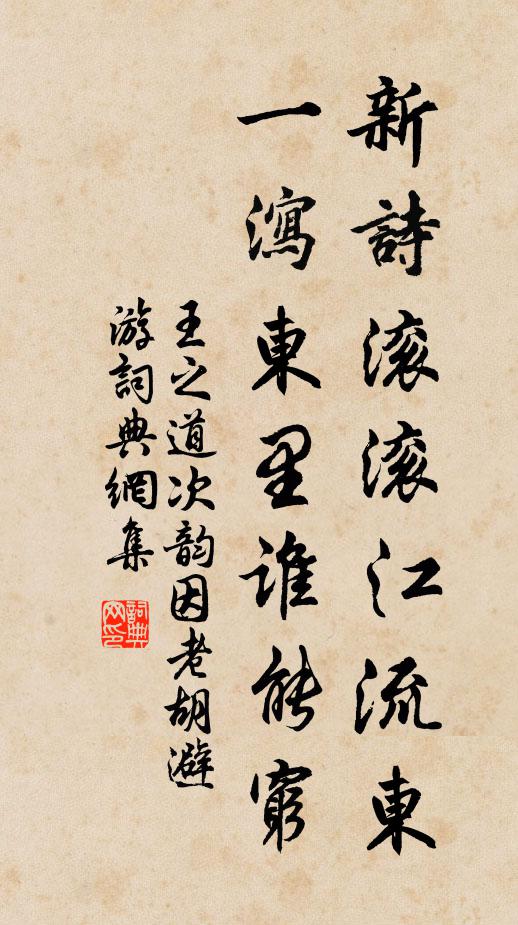 新詩滚滚江流東
一瀉東里誰能窮
王之道次韵因老胡避
游詞典網集
詞典網印